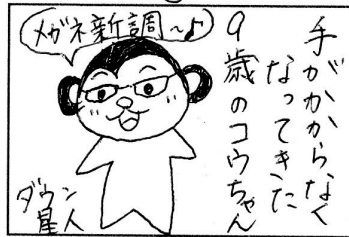 メガネ新調〜♪
手がかからなく
なってきた
9歳のコウちゃん
ダウン
星人